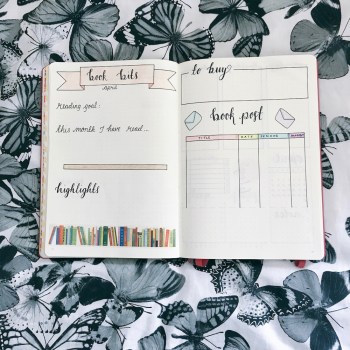 book bits
April
Reading goal:
this month I have read...
highlights
to buy
book post
TITLE
DATE